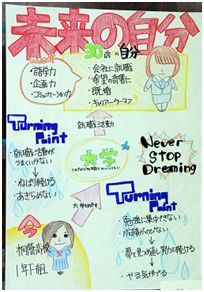 未来の自分
30歳の自分
・語学力
・企画力
・コミュニケーション力
・会社に就職
・希望の部署に
・既婚
・キャリアーウーマン
Turning Point
就職活動
・就職活動が
うまくいかない
↓
・ねばり続ける
・あきらめない
大学
Never
STOP
Dreaming
Turning
Point
大学
・勉強に集中できない
・成績がのびない
↓
・夢を見つめ直し努力し続ける
↓
・やる気がでる
今
桐蔭高校
1年F組